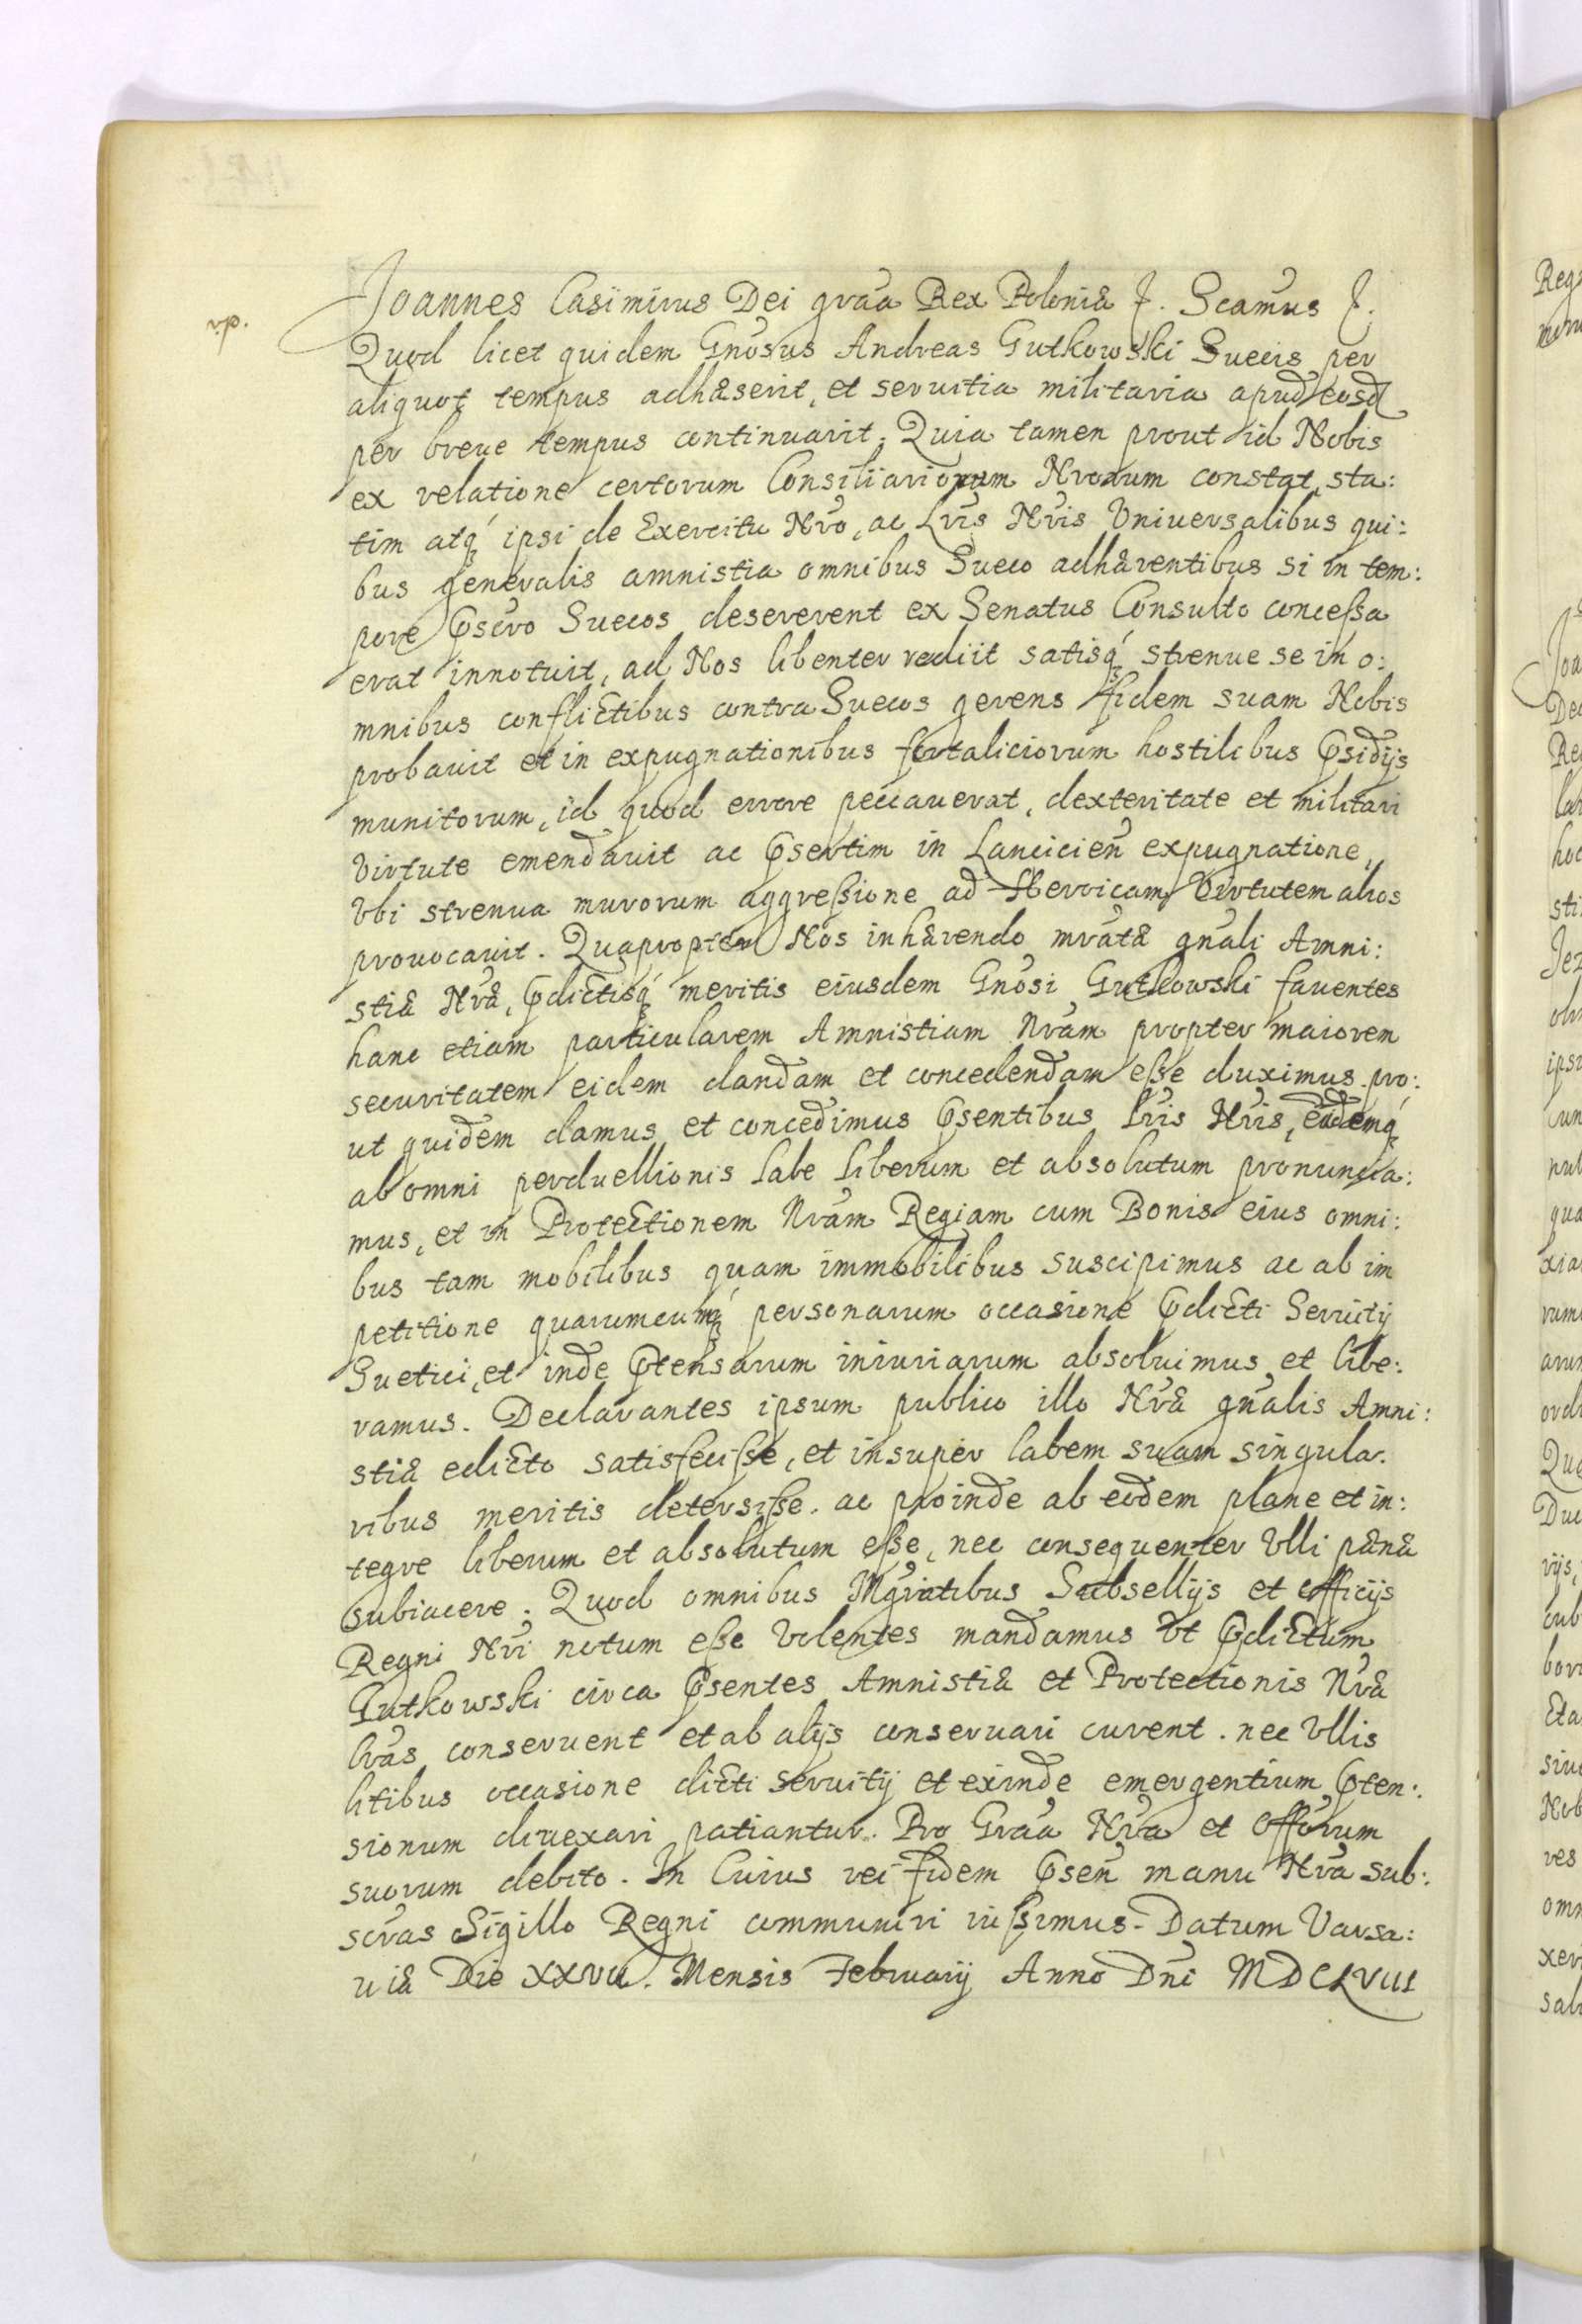 v.p.
Joannes Casimirus Dei gra͠a Rex Poloniæ &. Scamus &.
Quod licet quidem Gnosus Andreas Gutkowski Suecis per
aliquot tempus adhæserit, et seruitia militaria apud eosd
per breue tempus continuarit. Quia tamen prout id Nobis
ex relatione certorum Consiliariorum Nrorum constat, sta:
tim atq́ ipsi de Exercitu Nro, ac Lris Nris Vniuersalibus qui:
bus generalis amnistia omnibus Sueco adhærentibus si in tem:
pore p̃scro Suecos desererent ex Senatus Consulto concessa
erat innotuit, ad Nos libenter rediit satisq́ strenue se in o:
mnibus conflictibus contra Suecos gerens fidem suam Nobis
probauit et in expugnationibus fortaliciorum hostilibus p̃sidijs
munitorum, id quod errore peccauerat, dexteritate et militari
virtute emendauit ac p̃sertim in Lancicien̄ expugnatione,
Vbi strenua murorum aggressione ad Heroicam Virtutem alios
prouocauit. Quapropter Nos inhærendo mratæ gnali Amni:
stiæ Nræ, p̃dictisq́ meritis eiusdem Gnosi Gutkowski fauentes
hanc etiam particularem Amnistiam Nram propter maiorem
securitatem eidem dandam et concedendam esse duximus. pro:
ut quidem damus et concedimus p̃sentibus Lris Nris, eudemq́
ab omni perduellionis labe liberum et absolutum pronuncia:
mus, et in Protectionem Nram Regiam cum Bonis eius omni:
bus tam mobilibus quam immobilibus suscipimus ac ab im
petitione quarumcumq́ personarum occasione p̃dicti Seruitij
Suetici, et inde p̃tensarum iniuriarum absoluimus et libe:
ramus. Declarantes ipsum publico illo Nræ gnalis Amni:
stiæ edicto satisfecisse, et insuper labem suam singula.
ribus meritis detersisse. ac proinde ab eodem plane et in:
tegre liberum et absolutum esse, nec consequenter Vlli pænæ
subiacere. Quod omnibus Mgratibus Subsellijs et Officijs
Regni Nri notum esse Volentes mandamus Vt p̃dictum
Gutkowski circa p̃sentes Amnistiæ et Protectionis Nræ
lras conseruent et ab alijs conseruari curent. nec Vllis
litibus occasione dicti seruitij et exinde emergentium p̃ten:
sionum diuexari patiantur. Pro Gra͠a Nra et Offorum
suorum debito. In Cuius rei fidem p̃sen̄ manu Nra sub:
scras Sigillo Regni communiri iussimus. Datum Varsa:
uiæ Die XXVII. Mensis Februarij Anno Dni MDCLVIII